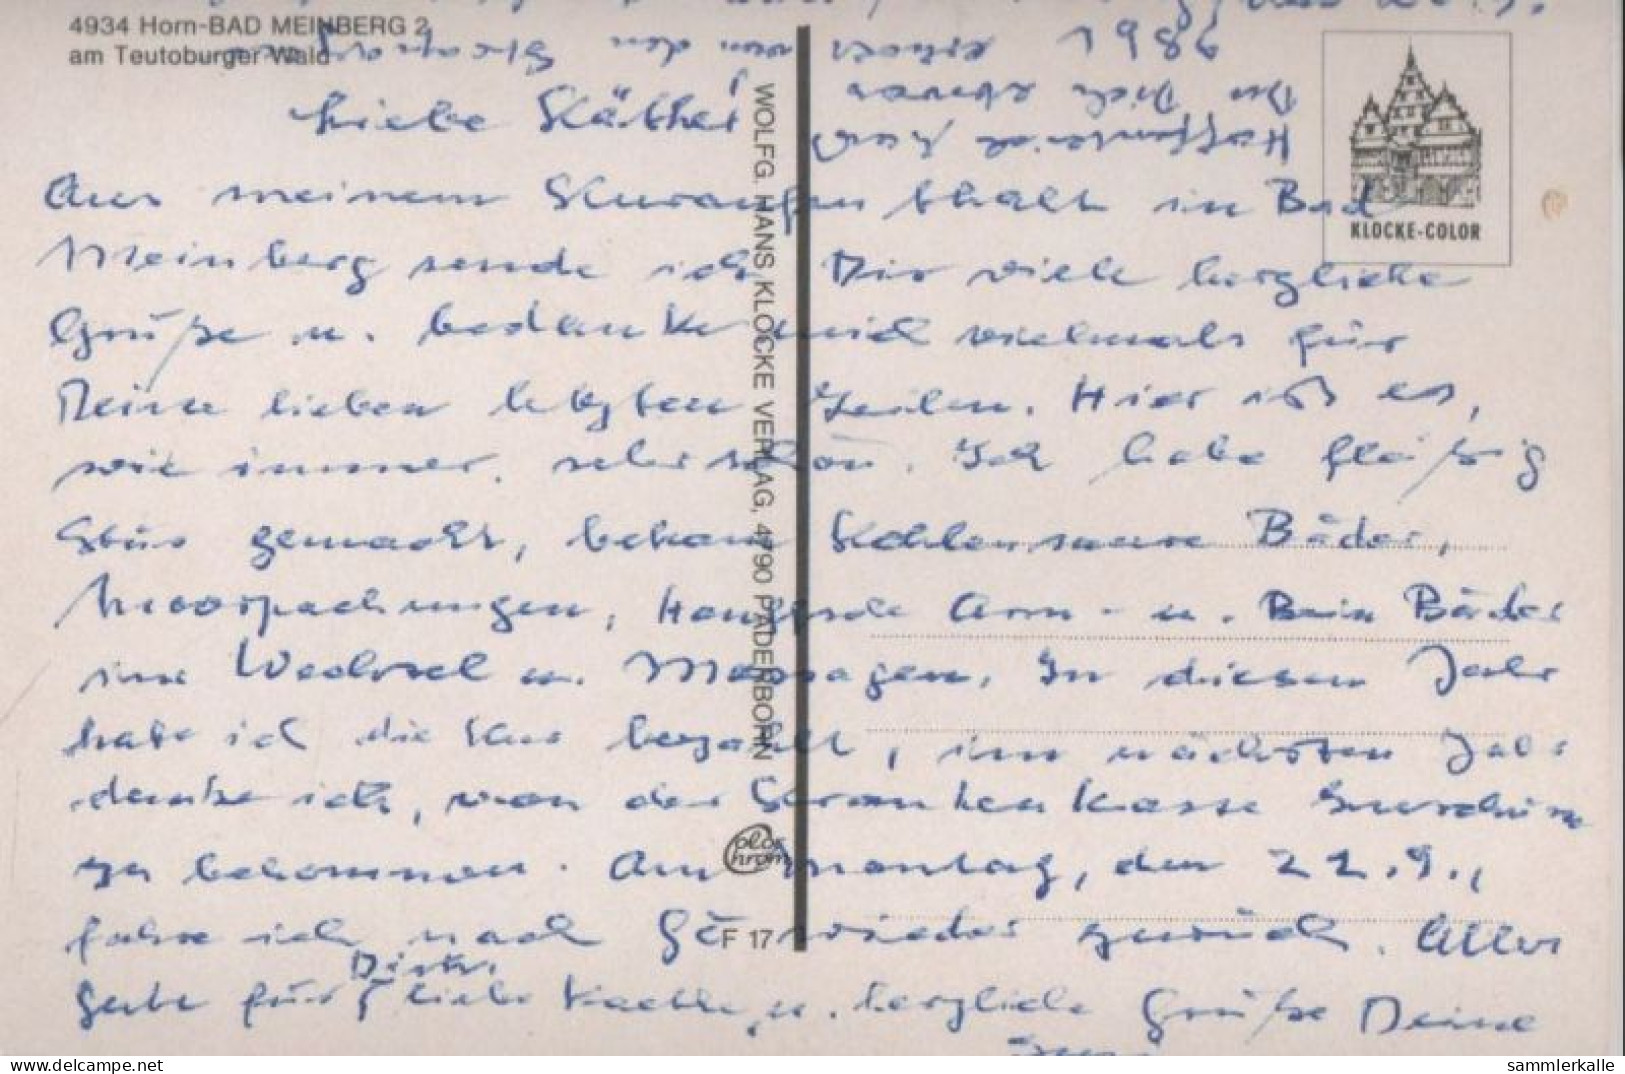 4934 Horn-BAD MEINBERG 2
am Teutoburger Wald
1986
Hoffentlich hast
Du Dich etwas
von den
Liebe Käthe!
Aus meinem Kuraufenthalt in Bad
Meinberg sende ich Dir viele herzliche
Grüße u. bedanke mich vielmals für
Deine lieben letzten Zeilen. Hier ist es,
wie immer, sehr schön. Ich habe fleißig
Kur gemacht, bekam Kohlensaure Bäder,
Moorpackungen, Arm- u. Bein Bäder
im Wechsel u. Massagen. In diesem Jahr
habe ich die Kur bezahlt, im nächsten Jahr
denke ich, von der Krankenkasse
zu bekommen. Am Montag, den 22.9.,
fahre ich nach wieder zurück. Alles
Gute für Dich, liebe Kaethe, u. herzliche Grüße Deine
WOLFG. HANS KLOCKE VERLAG, 4790 PADERBORN
Color
Chrom
F 17
KLOCKE-COLOR
www.delcampe.net
sammlerkalle